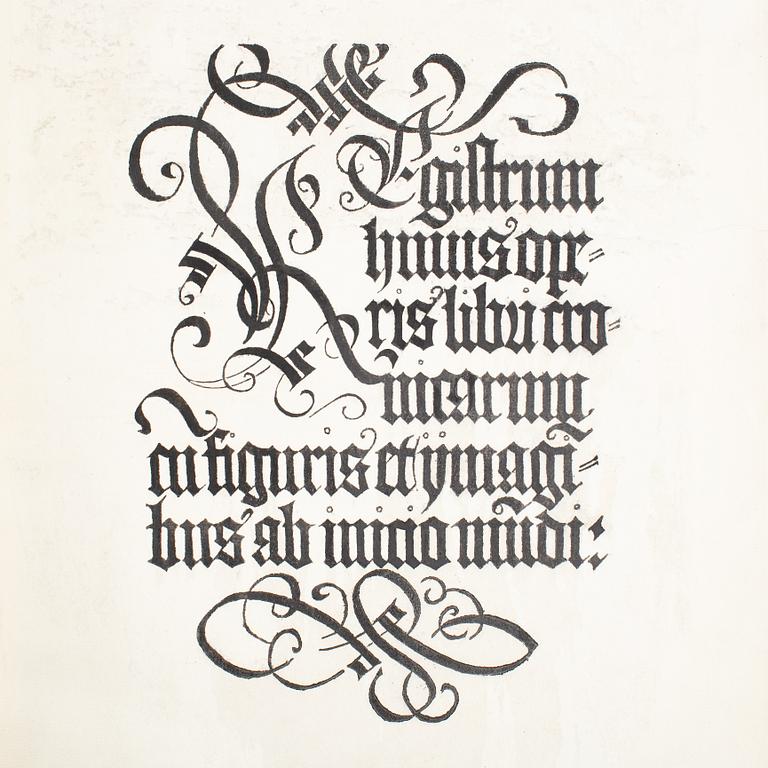 REgistrum
huius ope=
ris libri cro=
nicarum
cū figuris et ymagī=
bus ab inicio mūdi: